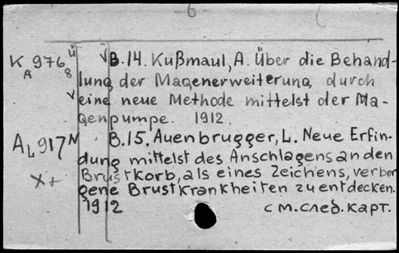 - 6 -
K 976 ü B.14. Kußmaul, A. Über die Behand-
A 8 lung der Magenerweiterung durch
v eine neue Methode mittelst der Ma-
genpumpe. 1912.
AL917 N B.15. Auenbrugger, L. Neue Erfin-
dung mittelst des Anschlagens an den
X+ Brustkorb, als eines Zeichens, verbor
gene Brustkrankheiten zu entdecken.
1912 см. след. карт.